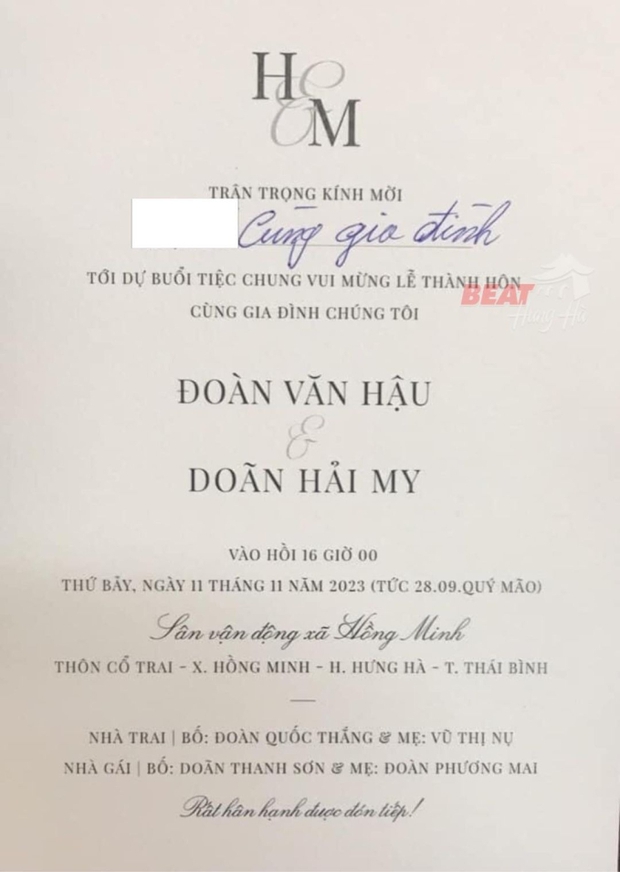 H & M
TRÂN TRỌNG KÍNH MỜI
Cùng gia đình
TỚI DỰ BUỔI TIỆC CHUNG VUI MỪNG LỄ THÀNH HÔN
BEAT Hưng Hà
CÙNG GIA ĐÌNH CHÚNG TÔI
ĐOÀN VĂN HẬU
&
DOÃN HẢI MY
VÀO HỒI 16 GIỜ 00
THỨ BẢY, NGÀY 11 THÁNG 11 NĂM 2023 (TỨC 28.09.QUÝ MÃO)
Sân vận động xã Hồng Minh
THÔN CỔ TRAI - X. HỒNG MINH - H. HƯNG HÀ - T. THÁI BÌNH
NHÀ TRAI | BỐ: ĐOÀN QUỐC THẮNG & MẸ: VŨ THỊ NỤ
NHÀ GÁI | BỐ: DOÃN THANH SƠN & MẸ: ĐOÀN PHƯƠNG MAI
Rất hân hạnh được đón tiếp!